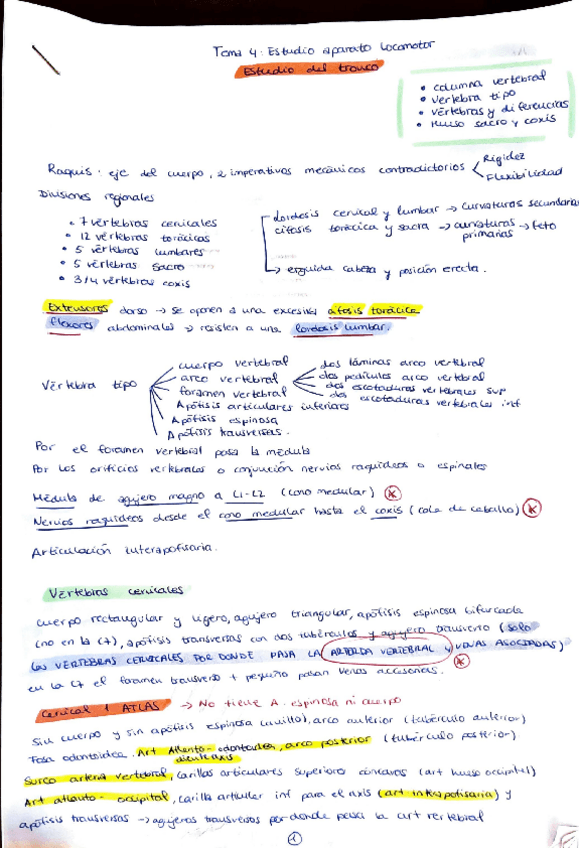 Tema 4: Estudio aparato locomotor
Estudio del tronco
• columna vertebral
• vértebra tipo
• vértebras y diferencias
• Hueso sacro y coxis
Raquis: eje del cuerpo, 2 imperativos mecánicos contradictorios
Rigidez
Flexibilidad
Divisiones regionales
• 7 vértebras cervicales
• 12 vértebras torácicas
• 5 vértebras lumbares
• 5 vértebras sacro
• 3/4 vértebras coxis
Lordosis cervical y lumbar → curvaturas secundarias
cifosis torácica y sacra → curvaturas primarias → feto
↳ erguida cabeza y posición erecta.
Extensores dorso → se oponen a una excesiva cifosis torácica
Flexores abdominales → resisten a una lordosis lumbar.
Vértebra tipo
cuerpo vertebral
arco vertebral
foramen vertebral
Apófisis articulares inferiores
Apófisis espinosa
Apófisis transversas.
dos láminas arco vertebral
dos pedículos arco vertebral
dos escotaduras vertebrales sup
dos escotaduras vertebrales inf
Por el foramen vertebral pasa la médula
Por los orificios vertebrales o conjunción nervios raquídeos o espinales
Médula de agujero magno a L1-L2 (cono medular) *
Nervios raquídeos desde el cono medular hasta el coxis (cola de caballo) *
Articulación interapofisaria.
Vértebras cervicales
cuerpo rectangular y ligero, agujero triangular, apófisis espinosa bifurcada
(no en la C7), apófisis transversas con dos tubérculos y agujero transverso (solo
las VERTEBRAS CERVICALES POR DONDE PASA LA ARTERIA VERTEBRAL y VENAS ASOCIADAS) *
en la C7 el foramen transverso + pequeño pasan venas accesorias.
Cervical 1 ATLAS → No tiene A. espinosa ni cuerpo
Sin cuerpo y sin apófisis espinosa (anillo), arco anterior (tubérculo anterior)
Fosa odontoidea. Art Atlanto-odontoidea, arco posterior (tubérculo posterior)
Surco arteria vertebral, carillas articulares superiores cóncavas (art hueso occipital)
Art atlanto-occipital, carilla articular inf para el axis (art interapofisaria) y
apófisis transversas → agujeros transversos por donde pasa la art vertebral
1